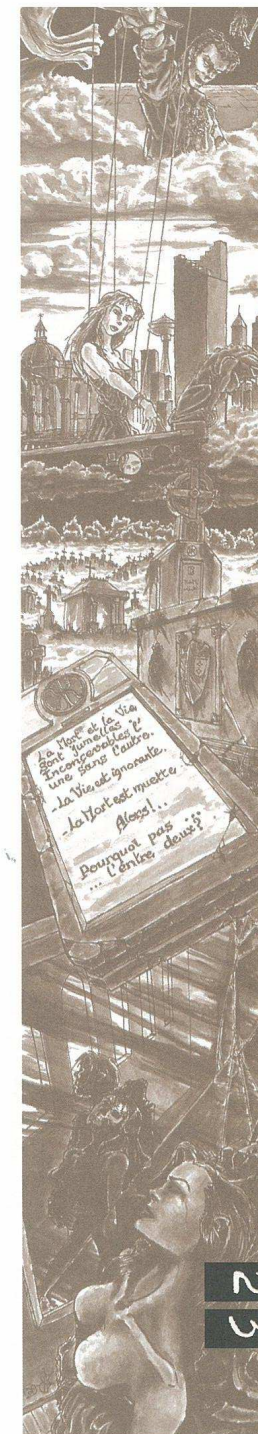 La Mort et la Vie
sont jumelles
Inconcevables l'
une sans l'autre.
La Vie est ignorante.
La Mort est muette
Alors!..
Pourquoi pas
... l'entre deux?
2 3